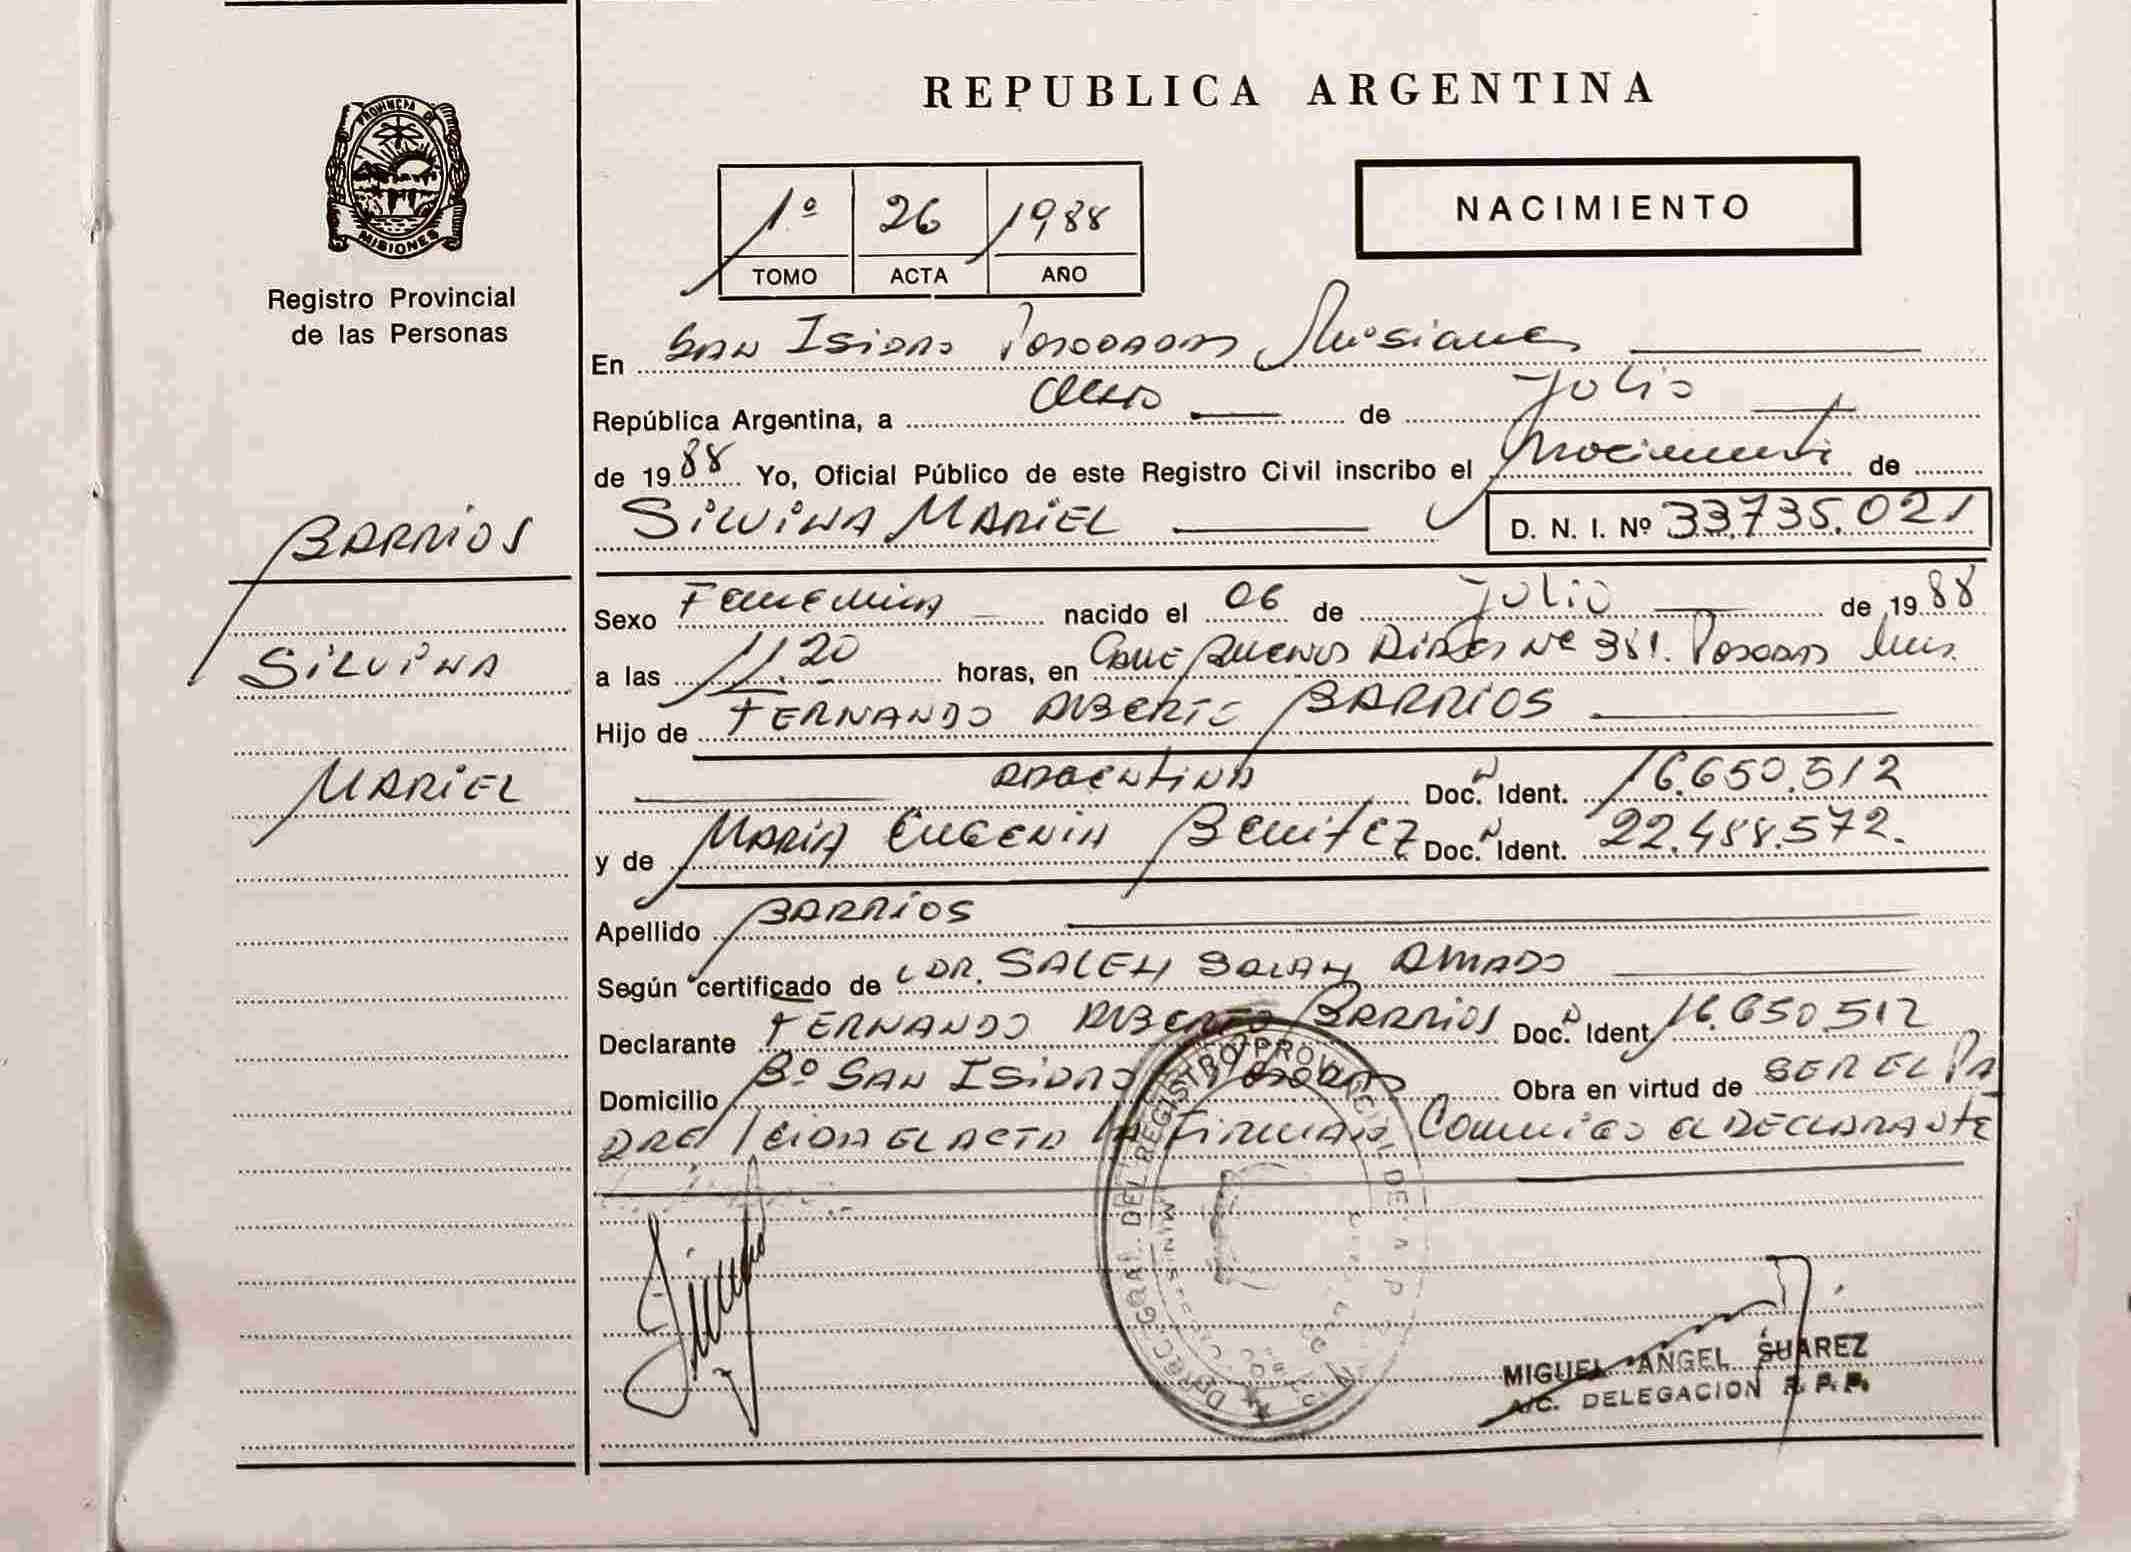 REPUBLICA ARGENTINA
PROVINCIA DE
MISIONES
Registro Provincial
de las Personas
1º 26 1988
TOMO ACTA AÑO
NACIMIENTO
En San Isidro Posadas Misiones
República Argentina, a ocho de Julio
de 1988 Yo, Oficial Público de este Registro Civil inscribo el Nacimiento de
SILVINA MARIEL D. N. I. Nº 33.735.021
BARRIOS
SILVINA
MARIEL
Sexo Femenino nacido el 06 de Julio de 1988
a las 11.20 horas, en Calle Buenos Aires Nº 381. Posadas Mnes.
Hijo de FERNANDO ALBERTO BARRIOS
ARGENTINA Doc. Ident. 16.650.512
y de MARIA EUGENIA BENITEZ Doc. Ident. 22.488.572.
Apellido BARRIOS
Según certificado de DR. SALEM AMADO
Declarante FERNANDO ALBERTO BARRIOS Doc. Ident 16.650.512
Domicilio Bº SAN ISIDRO Posadas Obra en virtud de SER EL PA
DRE LEIDA EL ACTA LA FIRMAN Conmigo el DECLARANTE
REGISTRO PROVINCIAL DE
MIGUEL ANGEL SUAREZ
A/C. DELEGACION R. P. P.